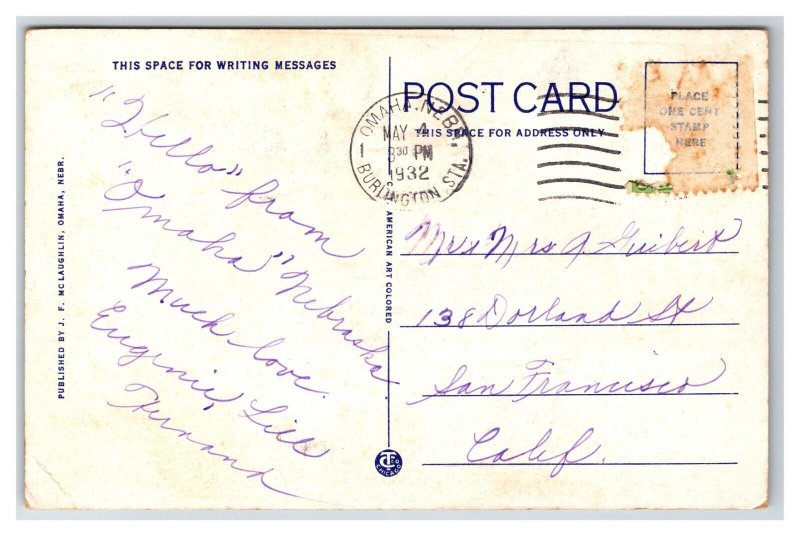 THIS SPACE FOR WRITING MESSAGES
"Hello" from
"Omaha" Nebraska.
Much love.
Eugenie, Lill
Fernand
PUBLISHED BY J. F. MCLAUGHLIN, OMAHA, NEBR.
AMERICAN ART COLORED
POST CARD
THIS SPACE FOR ADDRESS ONLY
OMAHA, NEBR.
MAY 4
1
830 PM
1932
BURLINGTON STA.
PLACE
ONE CENT
STAMP
HERE
Mr & Mrs J. Guibert
138 Dorland St
San Francisco
Calif.
CHICAGO